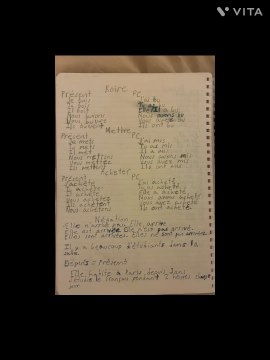 VITA
Boire
Présent PC
Je bois J'ai bu
Tu bois
Il boit a bu
Nous buvons Nous avons bu
Vous buvez Vous avez bu
Ils boivent Ils ont bu
Mettre
Présent PC
Je mets J'ai mis
Tu mets Tu as mis
Il met Il a mis
Nous mettons Nous avons mis
Vous mettez Vous avez mis
Ils mettent Ils ont mis
Acheter
Présent PC
J'achète J'ai acheté
Tu achètes Tu as acheté
Il achète Elle a acheté
Nous avons acheté
Vous achetez Vous avez acheté
Ils achètent Ils ont acheté
Nous achetons
Négation
Elle n'arrive pas. Elle arrive
Elle est arrivée. Elle n'est pas arrivé.
Elles sont arrivées. Elles ne sont pas arrivées
Il y a beaucoup d'étudiants dans la
salle.
Depuis = Présent
Elle habite à Paris depuis 3ans
J'étudie le français pendant 2 heures chaque
jour